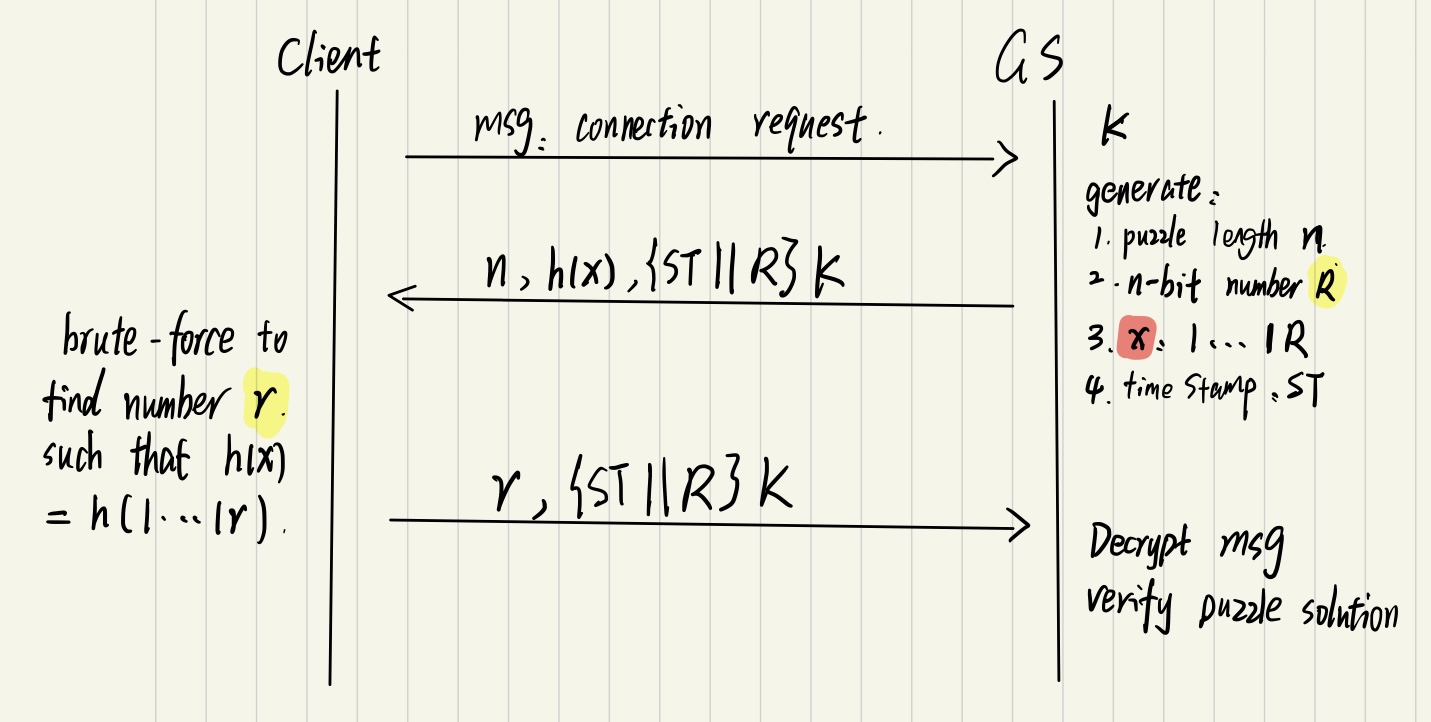 Client
GS
msg: connection request.
K
generate:
1. puzzle length n.
2. n-bit number R
3. x: 1... 1R
4. time stamp: ST
n, h(x), {ST || R} K
brute-force to
find number r.
such that h(x)
= h(1...1r).
r, {ST || R} K
Decrypt msg
verify puzzle solution